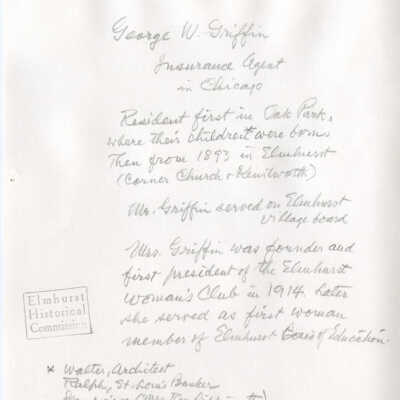 George W. Griffin
Insurance Agent
in Chicago
Resident first in Oak Park,
where their children* were born.
Then from 1893 in Elmhurst
(Corner Church & Kenilworth)
Mr. Griffin served on Elmhurst
Village board
Mrs. Griffin was founder and
first president of the Elmhurst
Woman's Club in 1914. Later
she served as first woman
member of Elmhurst Board of Education.
Elmhurst
Historical
Commission
* Walter, Architect
Ralph, St. Louis Banker